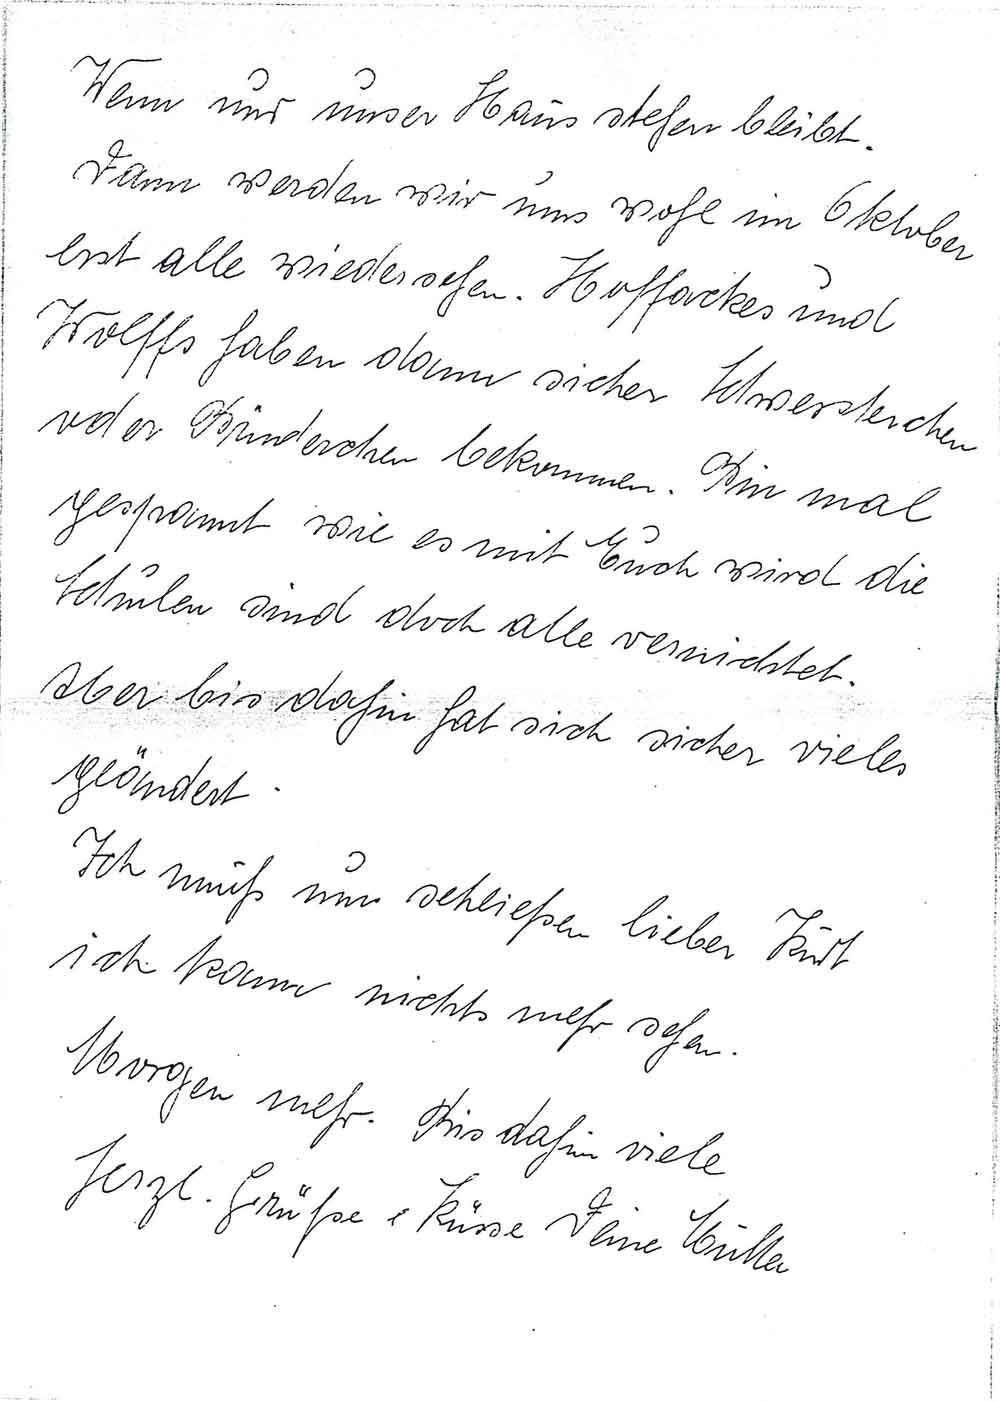 Wenn nur unser Haus stehen bleibt.
Dann werden wir uns wohl im Oktober
erst alle wiedersehen. Hoffackes und
Wolffs haben dann sicher Schwesterchen
oder Brüderchen bekommen. Bin mal
gespannt wie es mit Euch wird die
Schulen sind doch alle vernichtet.
Aber bis dahin hat sich sicher vieles
geändert.
Ich muß nun schließen lieber Kurt
ich kann nichts mehr sehen.
Morgen mehr. Bis dahin viele
herzl. Grüße & Küsse Deine Mutter